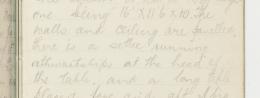 one being 16' X 11' 6 X 10. The
walls and ceiling are panelled,
there is a settee running
athwartships at the head of
the table, and a long table
placed fore and aft along